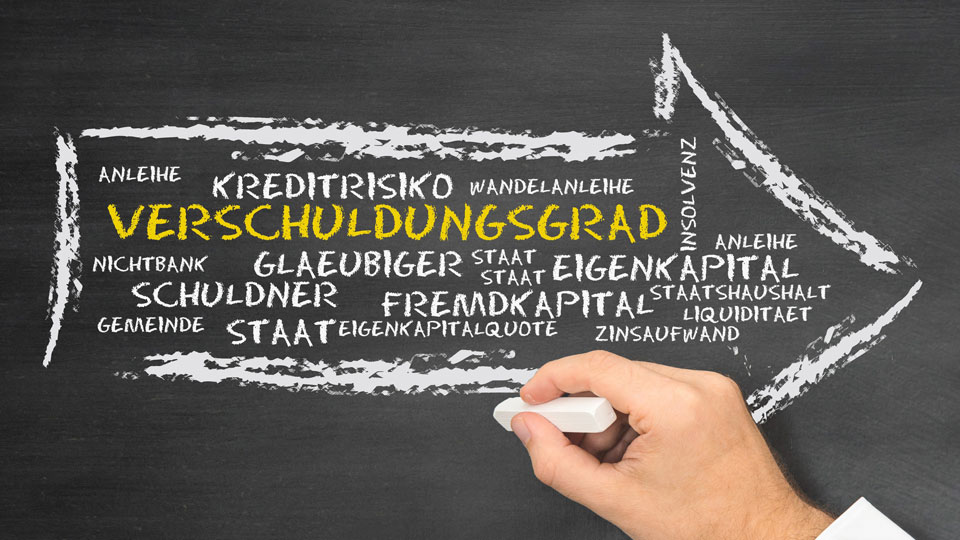 ANLEIHE
KREDITRISIKO WANDELANLEIHE
VERSCHULDUNGSGRAD
INSOLVENZ
ANLEIHE
NICHTBANK GLAEUBIGER STAAT
STAAT EIGENKAPITAL
SCHULDNER FREMDKAPITAL STAATSHAUSHALT
LIQUIDITAET
GEMEINDE STAAT EIGENKAPITALQUOTE ZINSAUFWAND